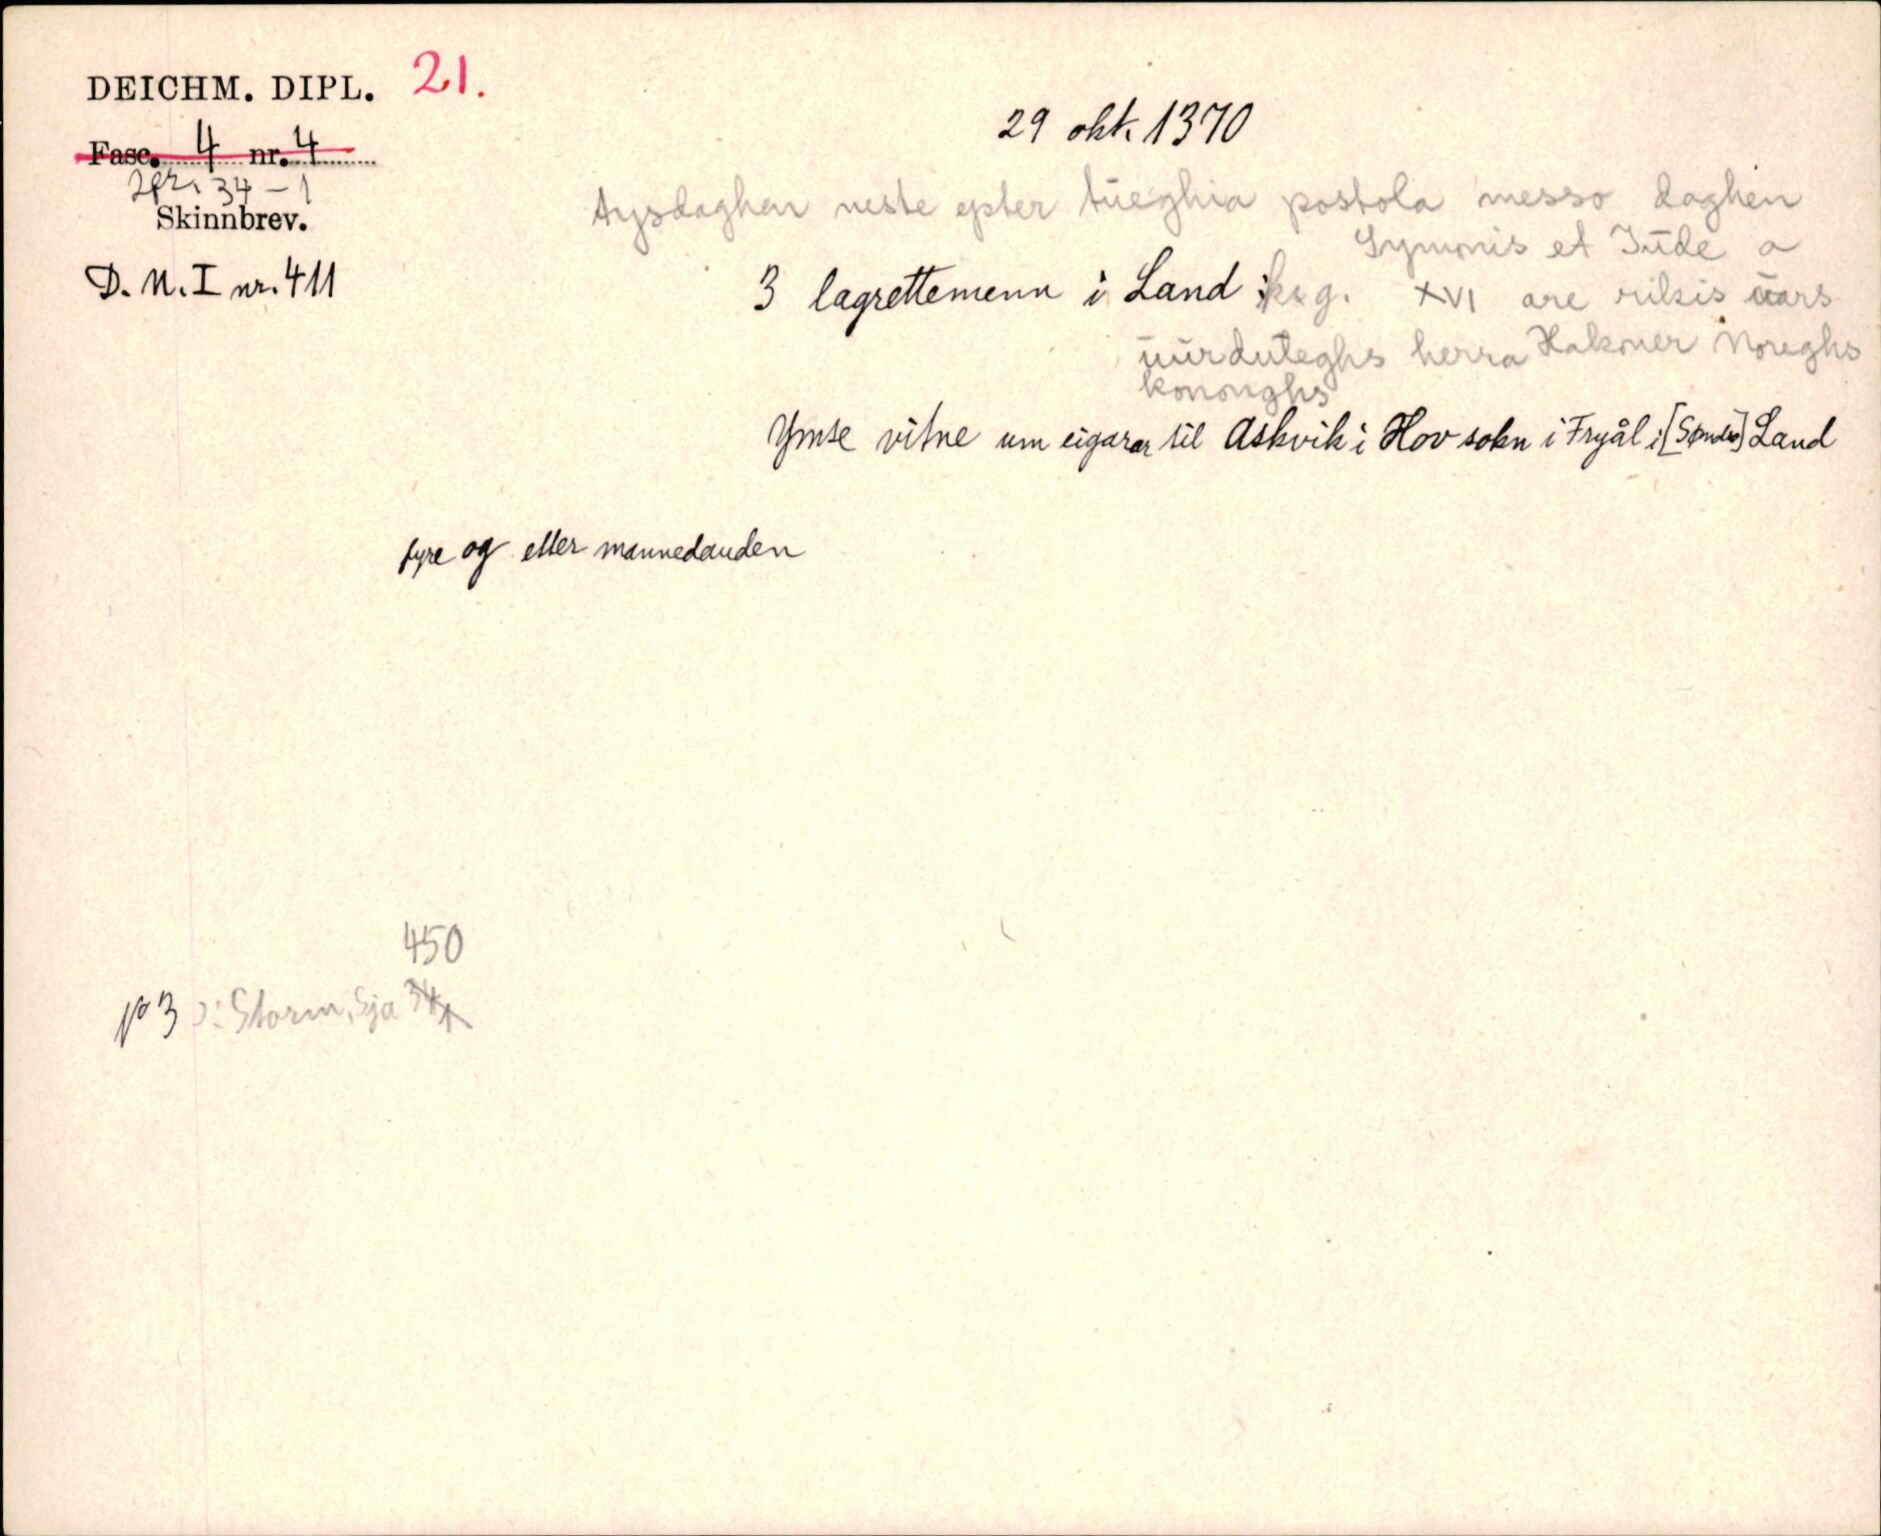 DEICHM. DIPL. 21.
29 okt. 1370
Fasc. 4 nr. 4
34-1
Skinnbrev.
tysdaghen neste epter tueghia postola messo daghen
Symonis et Jude a
D. N. I nr. 411
3 lagrettemenn i Land k.g. XVI are rikis uars
uurduleghs herra Hakoner Noreghs
kononghs
Ymse vitne um eigarar til Askvik i Hov sokn i Fryål i [Søndre] Land
fyre og eller mannedauden
450
p 3 ɔ: Storm, Sja 34/1